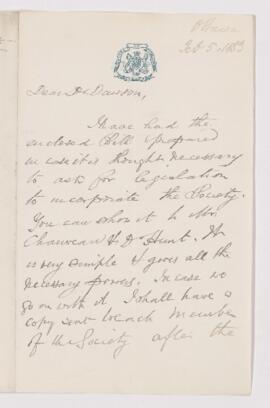 Ottawa
Feb 5. 1883
Dear Dr Dawson,
I have had the
enclosed Bill prepared
in case it is thought necessary
to ask for legislation
to incorporate the Society.
You can show it to Mr
Chauveau & Dr Hunt. It
is very simple & gives all the
necessary powers. In case we
go on with it I shall have a
copy sent to each member
of the Society after the